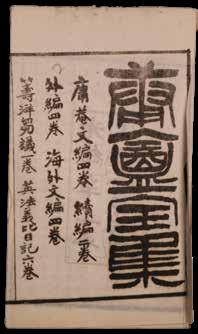 庸盦全集
庸菴文編四卷 續編二卷
外編四卷 海外文編四卷
籌洋芻議一卷 英法義比日記六卷